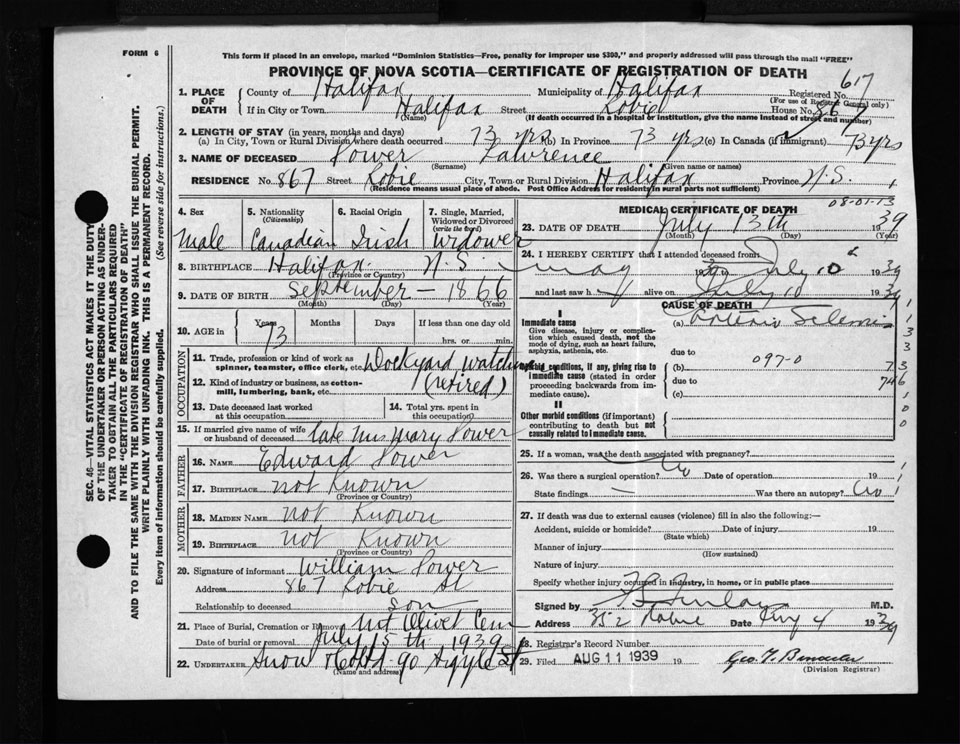 FORM 6
This form if placed in an envelope, marked "Dominion Statistics—Free, penalty for improper use $300," and properly addressed will pass through the mail "FREE"
PROVINCE OF NOVA SCOTIA—CERTIFICATE OF REGISTRATION OF DEATH
617
1. PLACE OF DEATH
County of Halifax Municipality of Halifax Registered No.
(For use of Registrar General only)
If in City or Town Halifax Street Robie House No. 867
(Name) (If death occurred in a hospital or institution, give the name instead of street and number)
2. LENGTH OF STAY (in years, months and days)
(a) In City, Town or Rural Division where death occurred 73 yrs (b) In Province 73 yrs (c) In Canada (if immigrant) 73 yrs
3. NAME OF DECEASED Power Lawrence
(Surname) (Given name or names)
RESIDENCE No. 867 Street Robie City, Town or Rural Division Halifax Province N.S.
(Residence means usual place of abode. Post Office Address for residents in rural parts not sufficient)
SEC. 46—VITAL STATISTICS ACT MAKES IT THE DUTY
OF THE UNDERTAKER OR PERSON ACTING AS UNDER-
TAKER TO OBTAIN ALL THE PARTICULARS REQUIRED
IN THE "CERTIFICATE OF REGISTRATION OF DEATH"
AND TO FILE THE SAME WITH THE DIVISION REGISTRAR WHO SHALL ISSUE THE BURIAL PERMIT.
WRITE PLAINLY WITH UNFADING INK. THIS IS A PERMANENT RECORD.
Every item of information should be carefully supplied. (See reverse side for instructions.)
4. Sex 5. Nationality 6. Racial Origin 7. Single, Married, Widowed or Divorced
(Citizenship) (write the word)
Male Canadian Irish Widower
8. BIRTHPLACE Halifax N.S.
(Province or Country)
9. DATE OF BIRTH September — 1866
(Month) (Day) (Year)
10. AGE in Years Months Days If less than one day old
73 hrs. or min.
OCCUPATION
11. Trade, profession or kind of work as spinner, teamster, office clerk, etc. Dockyard watchman
12. Kind of industry or business, as cotton-mill, lumbering, bank, etc. (retired)
13. Date deceased last worked at this occupation
14. Total yrs. spent in this occupation
15. If married give name of wife or husband of deceased late Mrs Mary Power
FATHER
16. NAME Edward Power
17. BIRTHPLACE not Known
(Province or Country)
MOTHER
18. MAIDEN NAME not Known
19. BIRTHPLACE not Known
(Province or Country)
20. Signature of informant William Power
Address 867 Robie St
Relationship to deceased son
21. Place of Burial, Cremation or Removal Mt Olivet Cem
Date of burial or removal July 15th 1939
22. UNDERTAKER Snow & Co Ltd 90 Argyle St
(Name and address)
MEDICAL CERTIFICATE OF DEATH
08-01-13
23. DATE OF DEATH July 13th 39
(Month) (Day) (Year)
24. I HEREBY CERTIFY that I attended deceased from
May 1939 to July 10th 1939
and last saw h alive on July 10 1939
CAUSE OF DEATH
I
Immediate cause
Give disease, injury or complication which caused death, not the mode of dying, such as heart failure, asphyxia, asthenia, etc.
(a)
due to
097-0
Morbid conditions, if any, giving rise to immediate cause (stated in order proceeding backwards from immediate cause).
(b)
due to
(c)
II
Other morbid conditions (if important) contributing to death but not causally related to immediate cause.
25. If a woman, was the death associated with pregnancy?
26. Was there a surgical operation? No Date of operation 19
State findings — Was there an autopsy? No
27. If death was due to external causes (violence) fill in also the following:—
Accident, suicide or homicide? Date of injury 19
(State which)
Manner of injury
(How sustained)
Nature of injury
Specify whether injury occurred in industry, in home, or in public place
Signed by Finlay M.D.
Address 352 Robie Date Aug 4 1939
28. Registrar's Record Number
29. Filed AUG 11 1939 19
(Division Registrar)